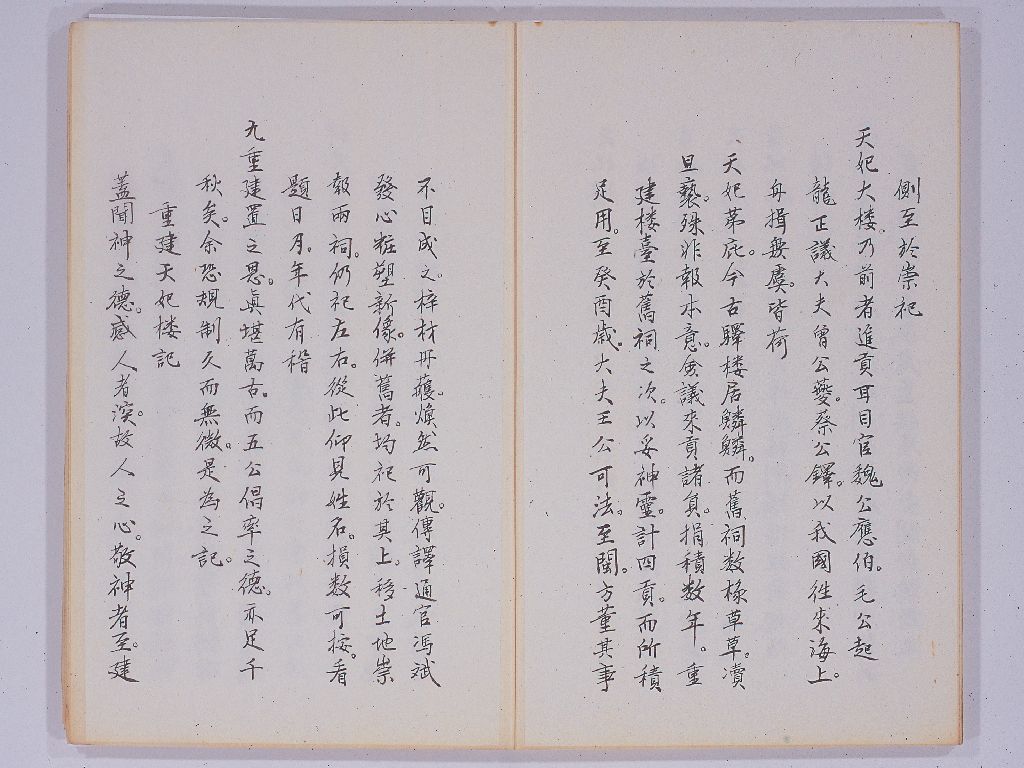 側至於崇祀
天妃大楼。乃前者進貢耳目官魏公應伯。毛公起
龍正議大夫曾公夔。蔡公鐸。以我國徃来海上。
舟揖無虞。皆荷
天妃苐庇。今古驛楼居鱗鱗。而舊祠数椽草草。瀆
且褻。殊非報本意。僉議来貢諸員。捐積数年。重
建楼臺於舊祠之次。以妥神靈。計四貢。而所積
足用。至癸酉歳。大夫王公可法。至閩。方董其事
不日成之。梓材丹蘸。煥然可觀。傳譯通官馮斌
發心粧塑新像。併舊者。均祀於其上。移土地崇
報兩祠。仍祀左右。從此仰見姓名。損数可按。看
題日月。年代有稽
九重建置之恩。真堪萬古。而五公倡率之德。亦足千
秋矣。余恐規制久而無徴。是為之記。
重建天妃楼記
蓋聞神之德。感人者深。故人之心。敬神者至。建